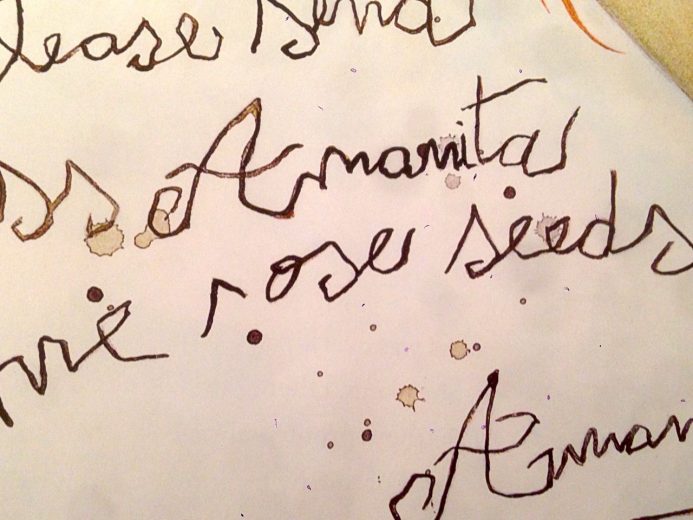 lease send
ss Amanita
rose seeds
Aman